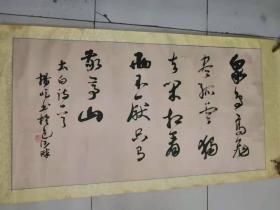 众鸟高飞
尽孤云独
去闲相看
两不厌只有
敬亭山
太白诗一首